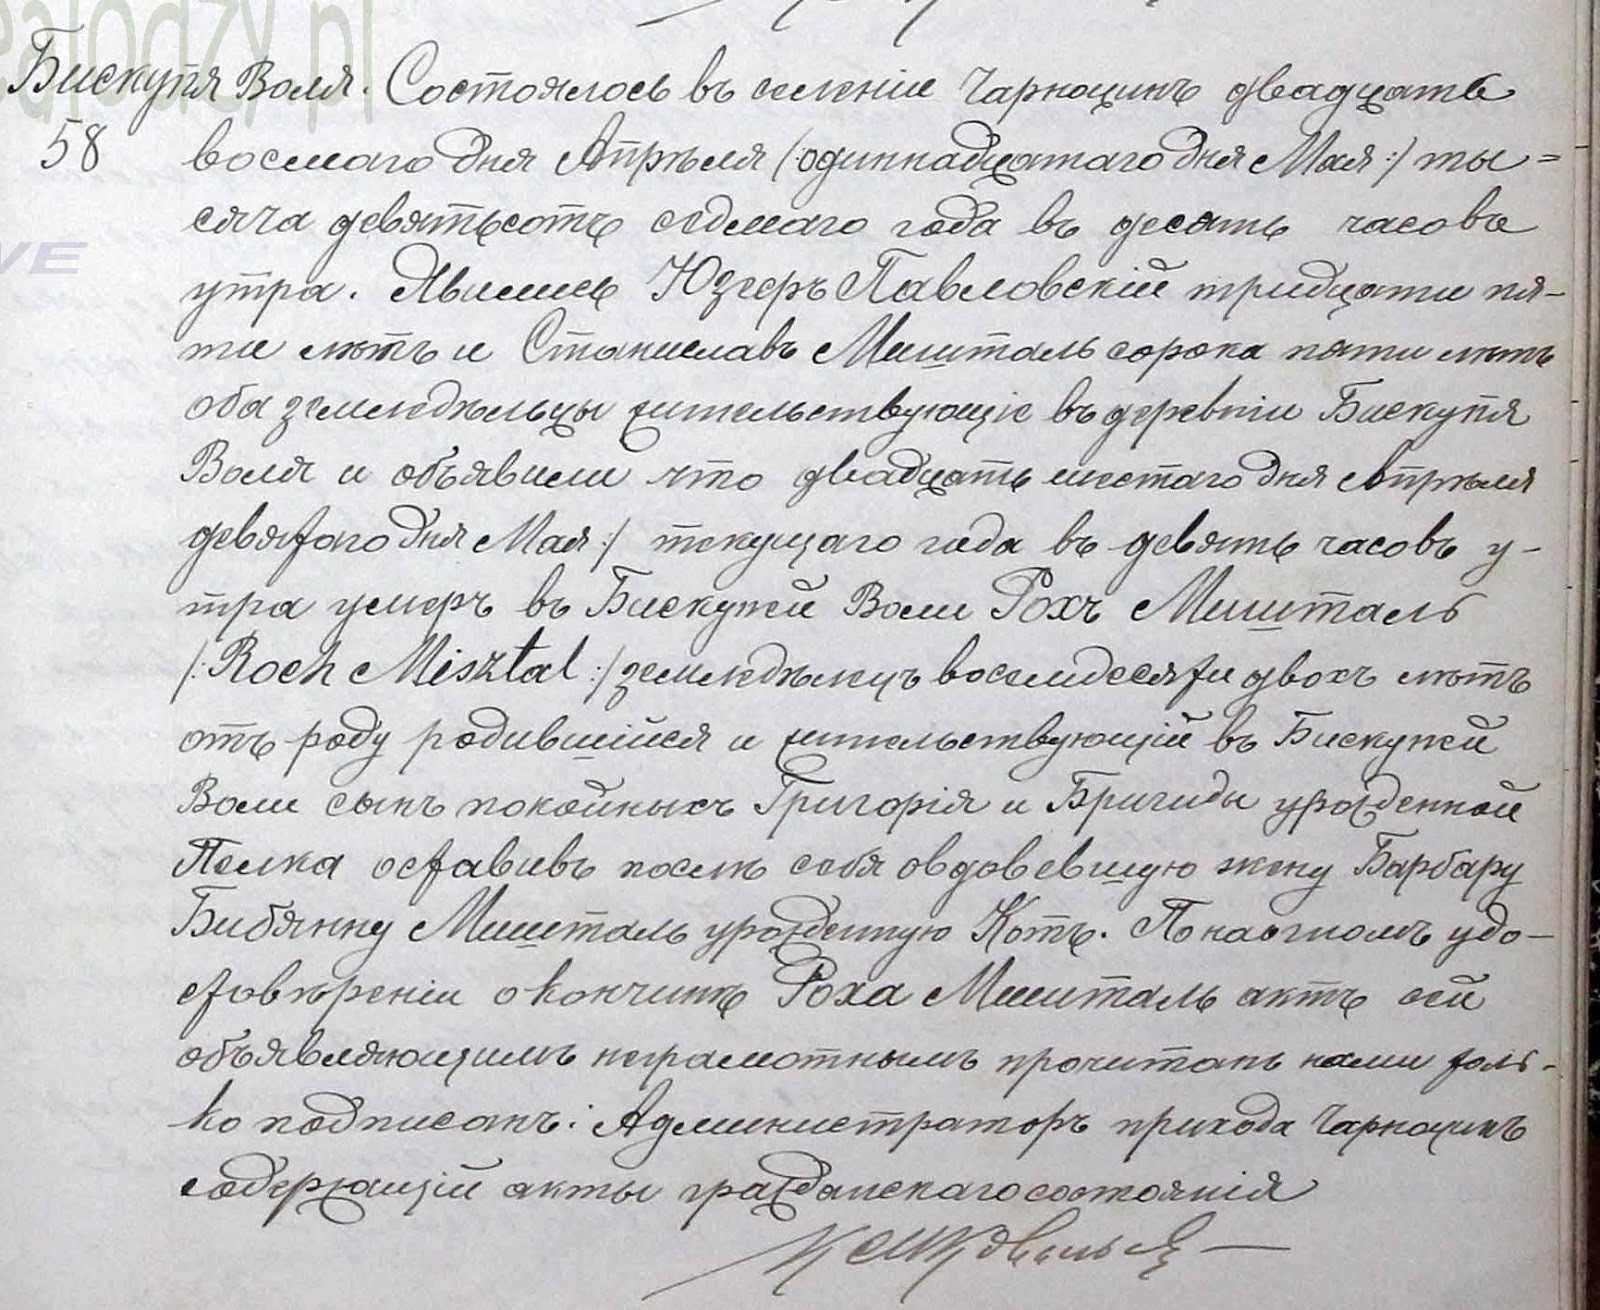 ealodzy.pl
VE
Бискупя Воля. Состоялось въ селеніе Чарноцинъ двадцать
58 восмаго дня Апрѣля (:одиннадцатаго дня Мая:) ты=
сяча девятьсотъ седмаго года въ десять часовъ
утра. Явились Юзефъ Павловскій тридцати пя-
ти лѣтъ и Станиславъ Мишталь сорока пяти лѣтъ
оба земледѣльцы жительствующіе въ деревни Бискупя
Воля и объявили что двадцать шестаго дня Апрѣля
девятого дня Мая:) текущаго года въ девять часовъ у-
тра умеръ въ Бискупей Воли Рохъ Мишталь
(:Roch Misztal:) земледѣлецъ восемдесяти двохъ лѣтъ
отъ роду родившійся и жительствующій въ Бискупей
Воли сынъ покойныхъ Григорія и Бригиды урожденной
Пелка оставивъ послѣ себя овдовевшую жену Барбару
Бибянну Мишталь урожденную Котъ. По наочномъ удо-
стовѣреніи о кончинѣ Роха Мишталь актъ сей
объявляющимъ неграмотнымъ прочитанъ нами толь-
ко подписанъ: Администраторъ прихода Чарноцинъ
содержащій акты гражданскаго состоянія